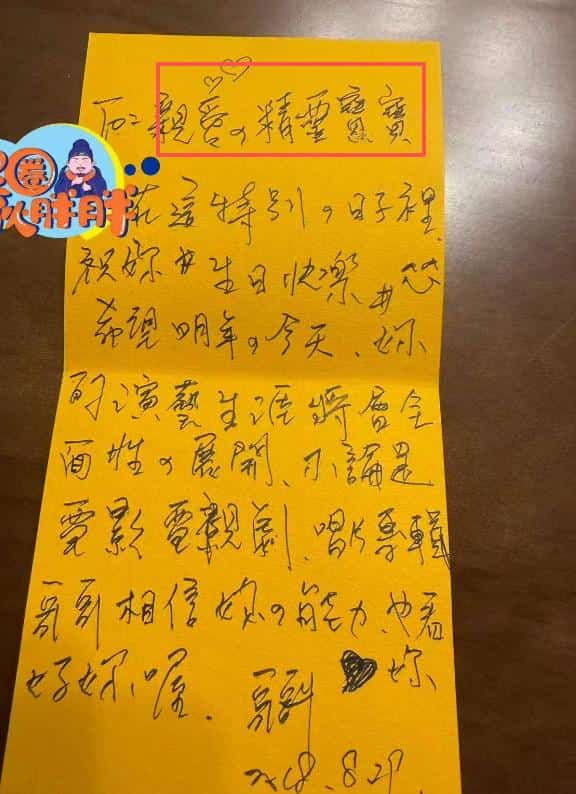 親愛の精靈寶寶
在這特別の日子裡
祝妳#生日快樂#
希望明年の今天、妳
的演藝生涯將會全
面性の展開、不論是
電影電視劇、唱片專輯
哥哥相信妳の能力、也看
好妳喔. 哥哥 妳
2018.8.29.
圈
胖胖